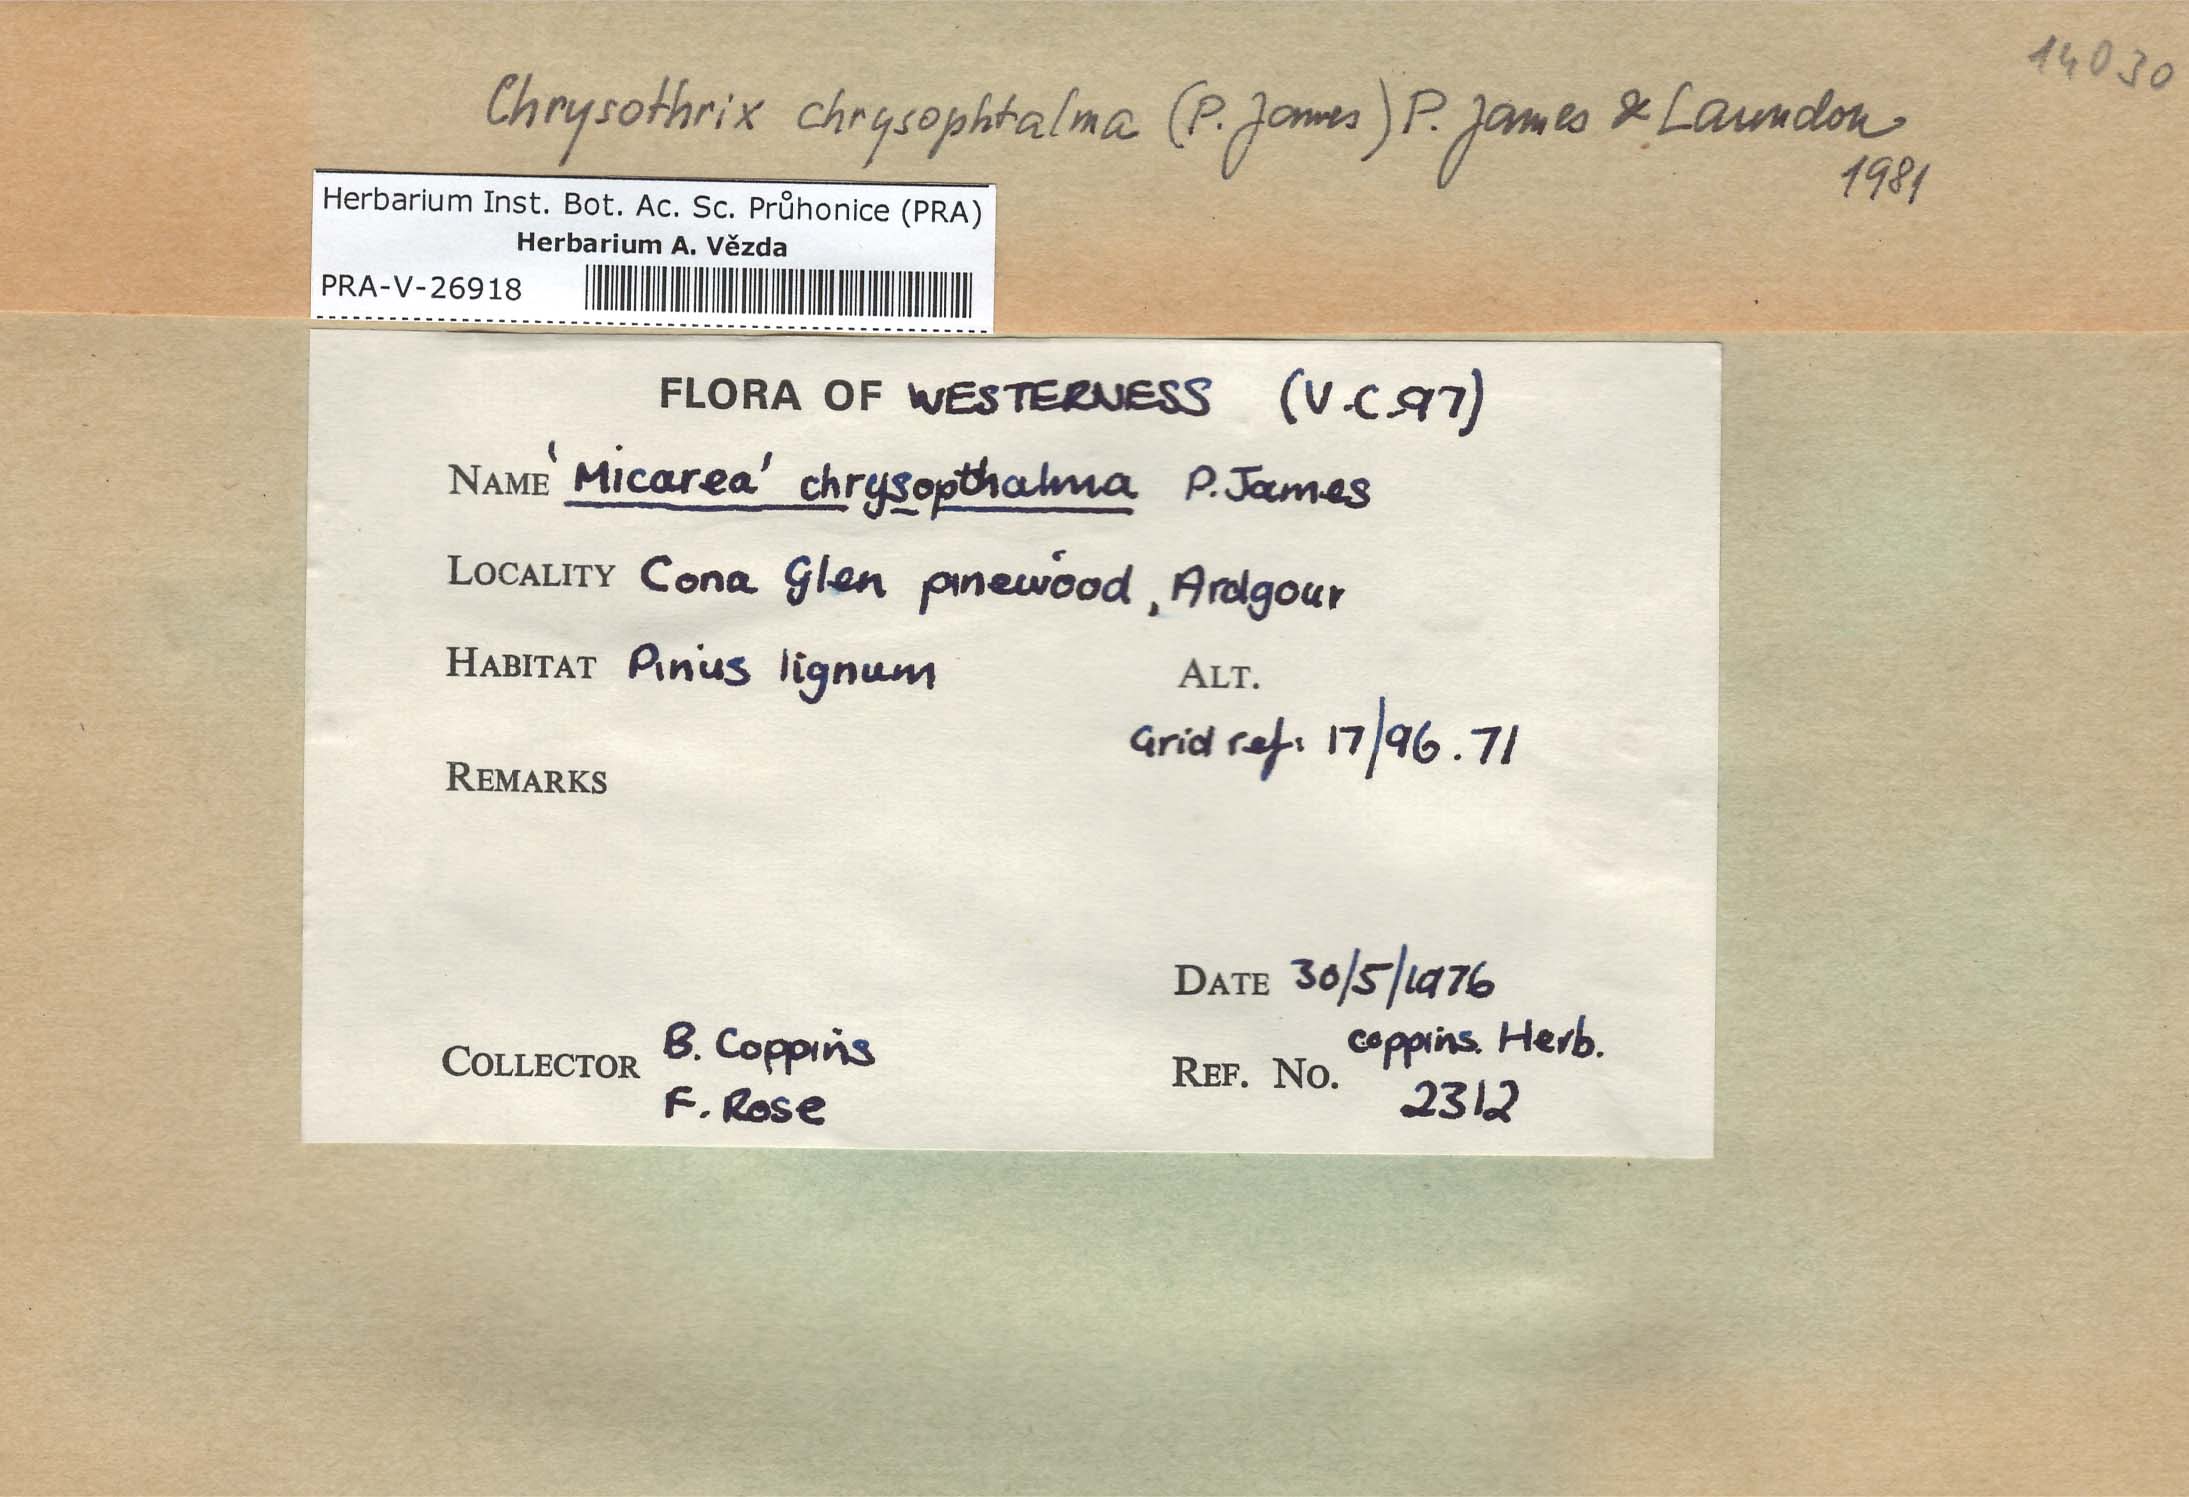 14030
Chrysothrix chrysophtalma (P. James) P. James & Laundon
1981
Herbarium Inst. Bot. Ac. Sc. Průhonice (PRA)
Herbarium A. Vězda
PRA-V-26918
FLORA OF WESTERNESS (V.C.97)
NAME 'Micarea' chrysopthalma P. James
LOCALITY Cona Glen pinewood, Ardgour
HABITAT Pinus lignum
ALT.
Grid ref: 17/96.71
REMARKS
DATE 30/5/1976
COLLECTOR B. Coppins
F. Rose
REF. NO. Coppins. Herb.
2312